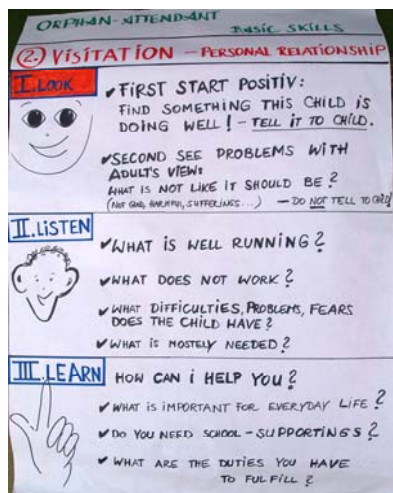 ORPHAN-ATTENDANT
BASIC SKILLS
2. VISITATION - PERSONAL RELATIONSHIP
I. LOOK
✔ FIRST START POSITIV:
FIND SOMETHING THIS CHILD IS
DOING WELL! - TELL IT TO CHILD.
✔ SECOND SEE PROBLEMS WITH
ADULT'S VIEW:
WHAT IS NOT LIKE IT SHOULD BE?
(NOT GOOD, HARMFUL, SUFFERINGS...) - DO NOT TELL TO CHILD!
II. LISTEN
✔ WHAT IS WELL RUNNING?
✔ WHAT DOES NOT WORK?
✔ WHAT DIFFICULTIES, PROBLEMS, FEARS
DOES THE CHILD HAVE?
✔ WHAT IS MOSTELY NEEDED?
III. LEARN
HOW CAN I HELP YOU?
✔ WHAT IS IMPORTANT FOR EVERYDAY LIFE?
✔ DO YOU NEED SCHOOL-SUPPORTINGS?
✔ WHAT ARE THE DUTIES YOU HAVE
TO FULFILL?